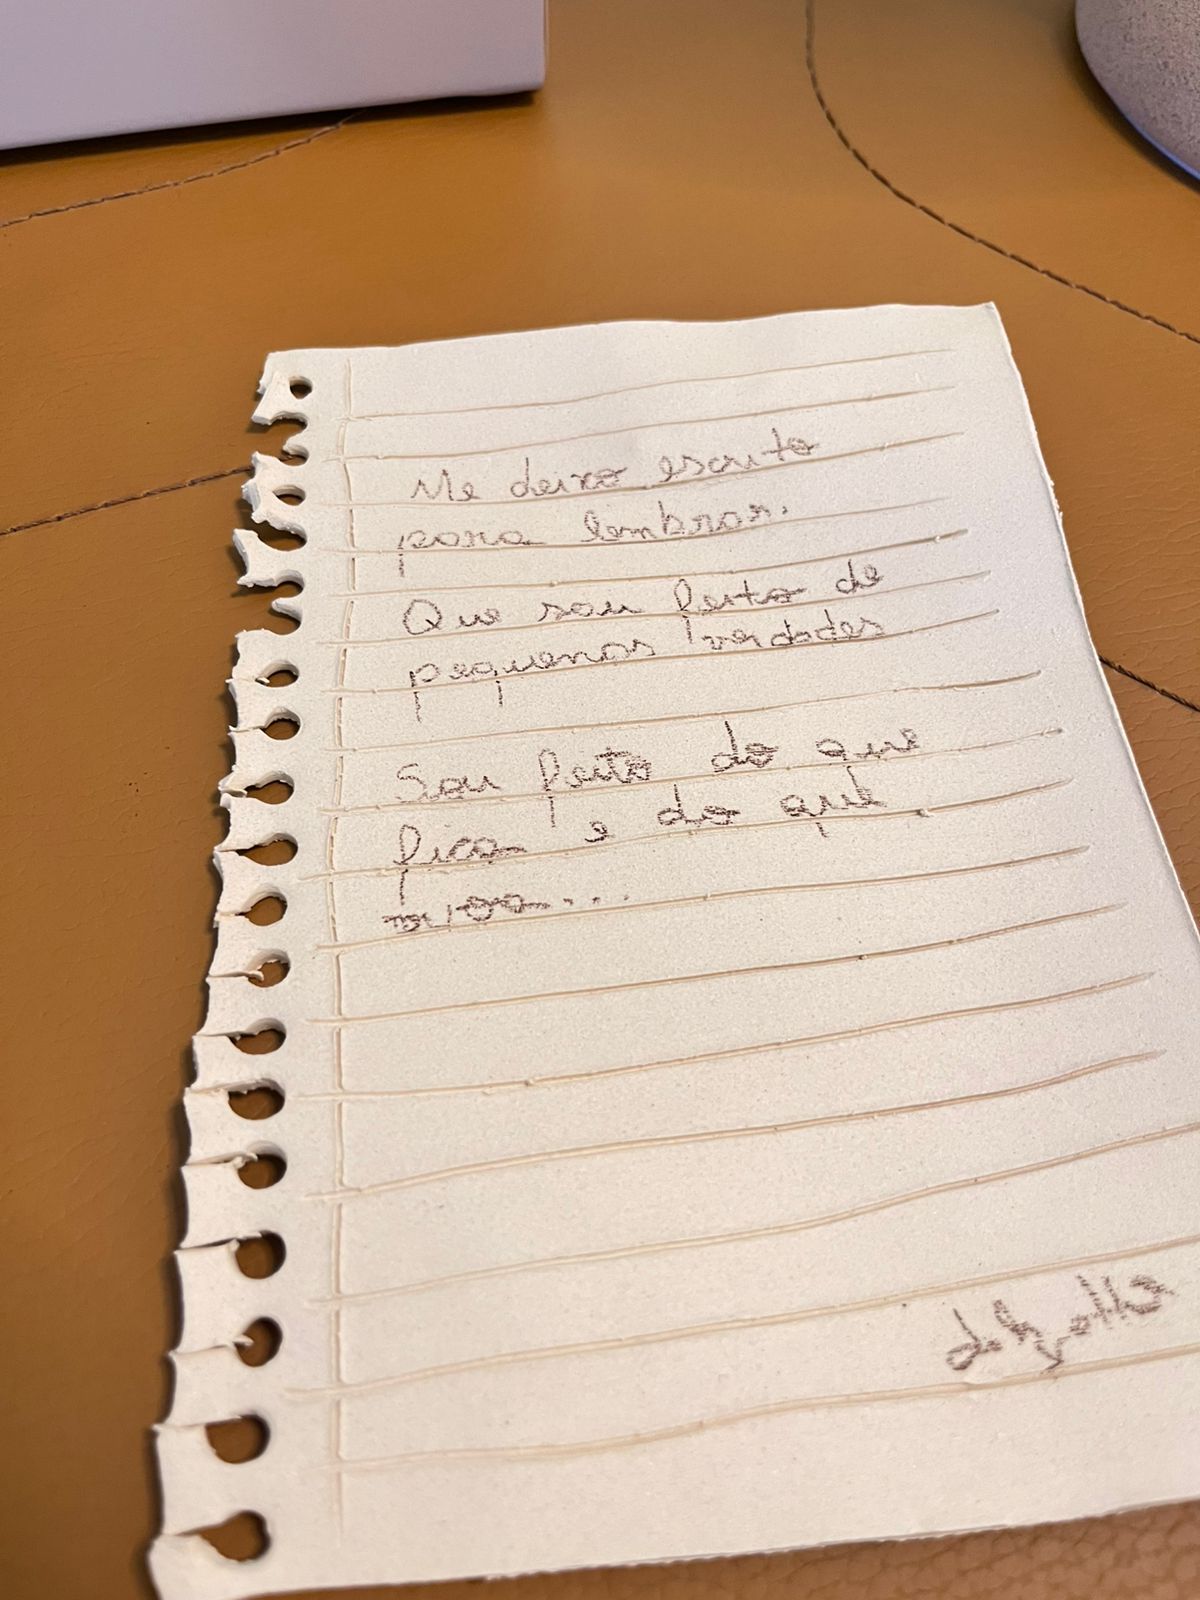 Me deixo escrito
para lembrar.
Que sou feito de
pequenas verdades
Sou feito do que
fica e do que